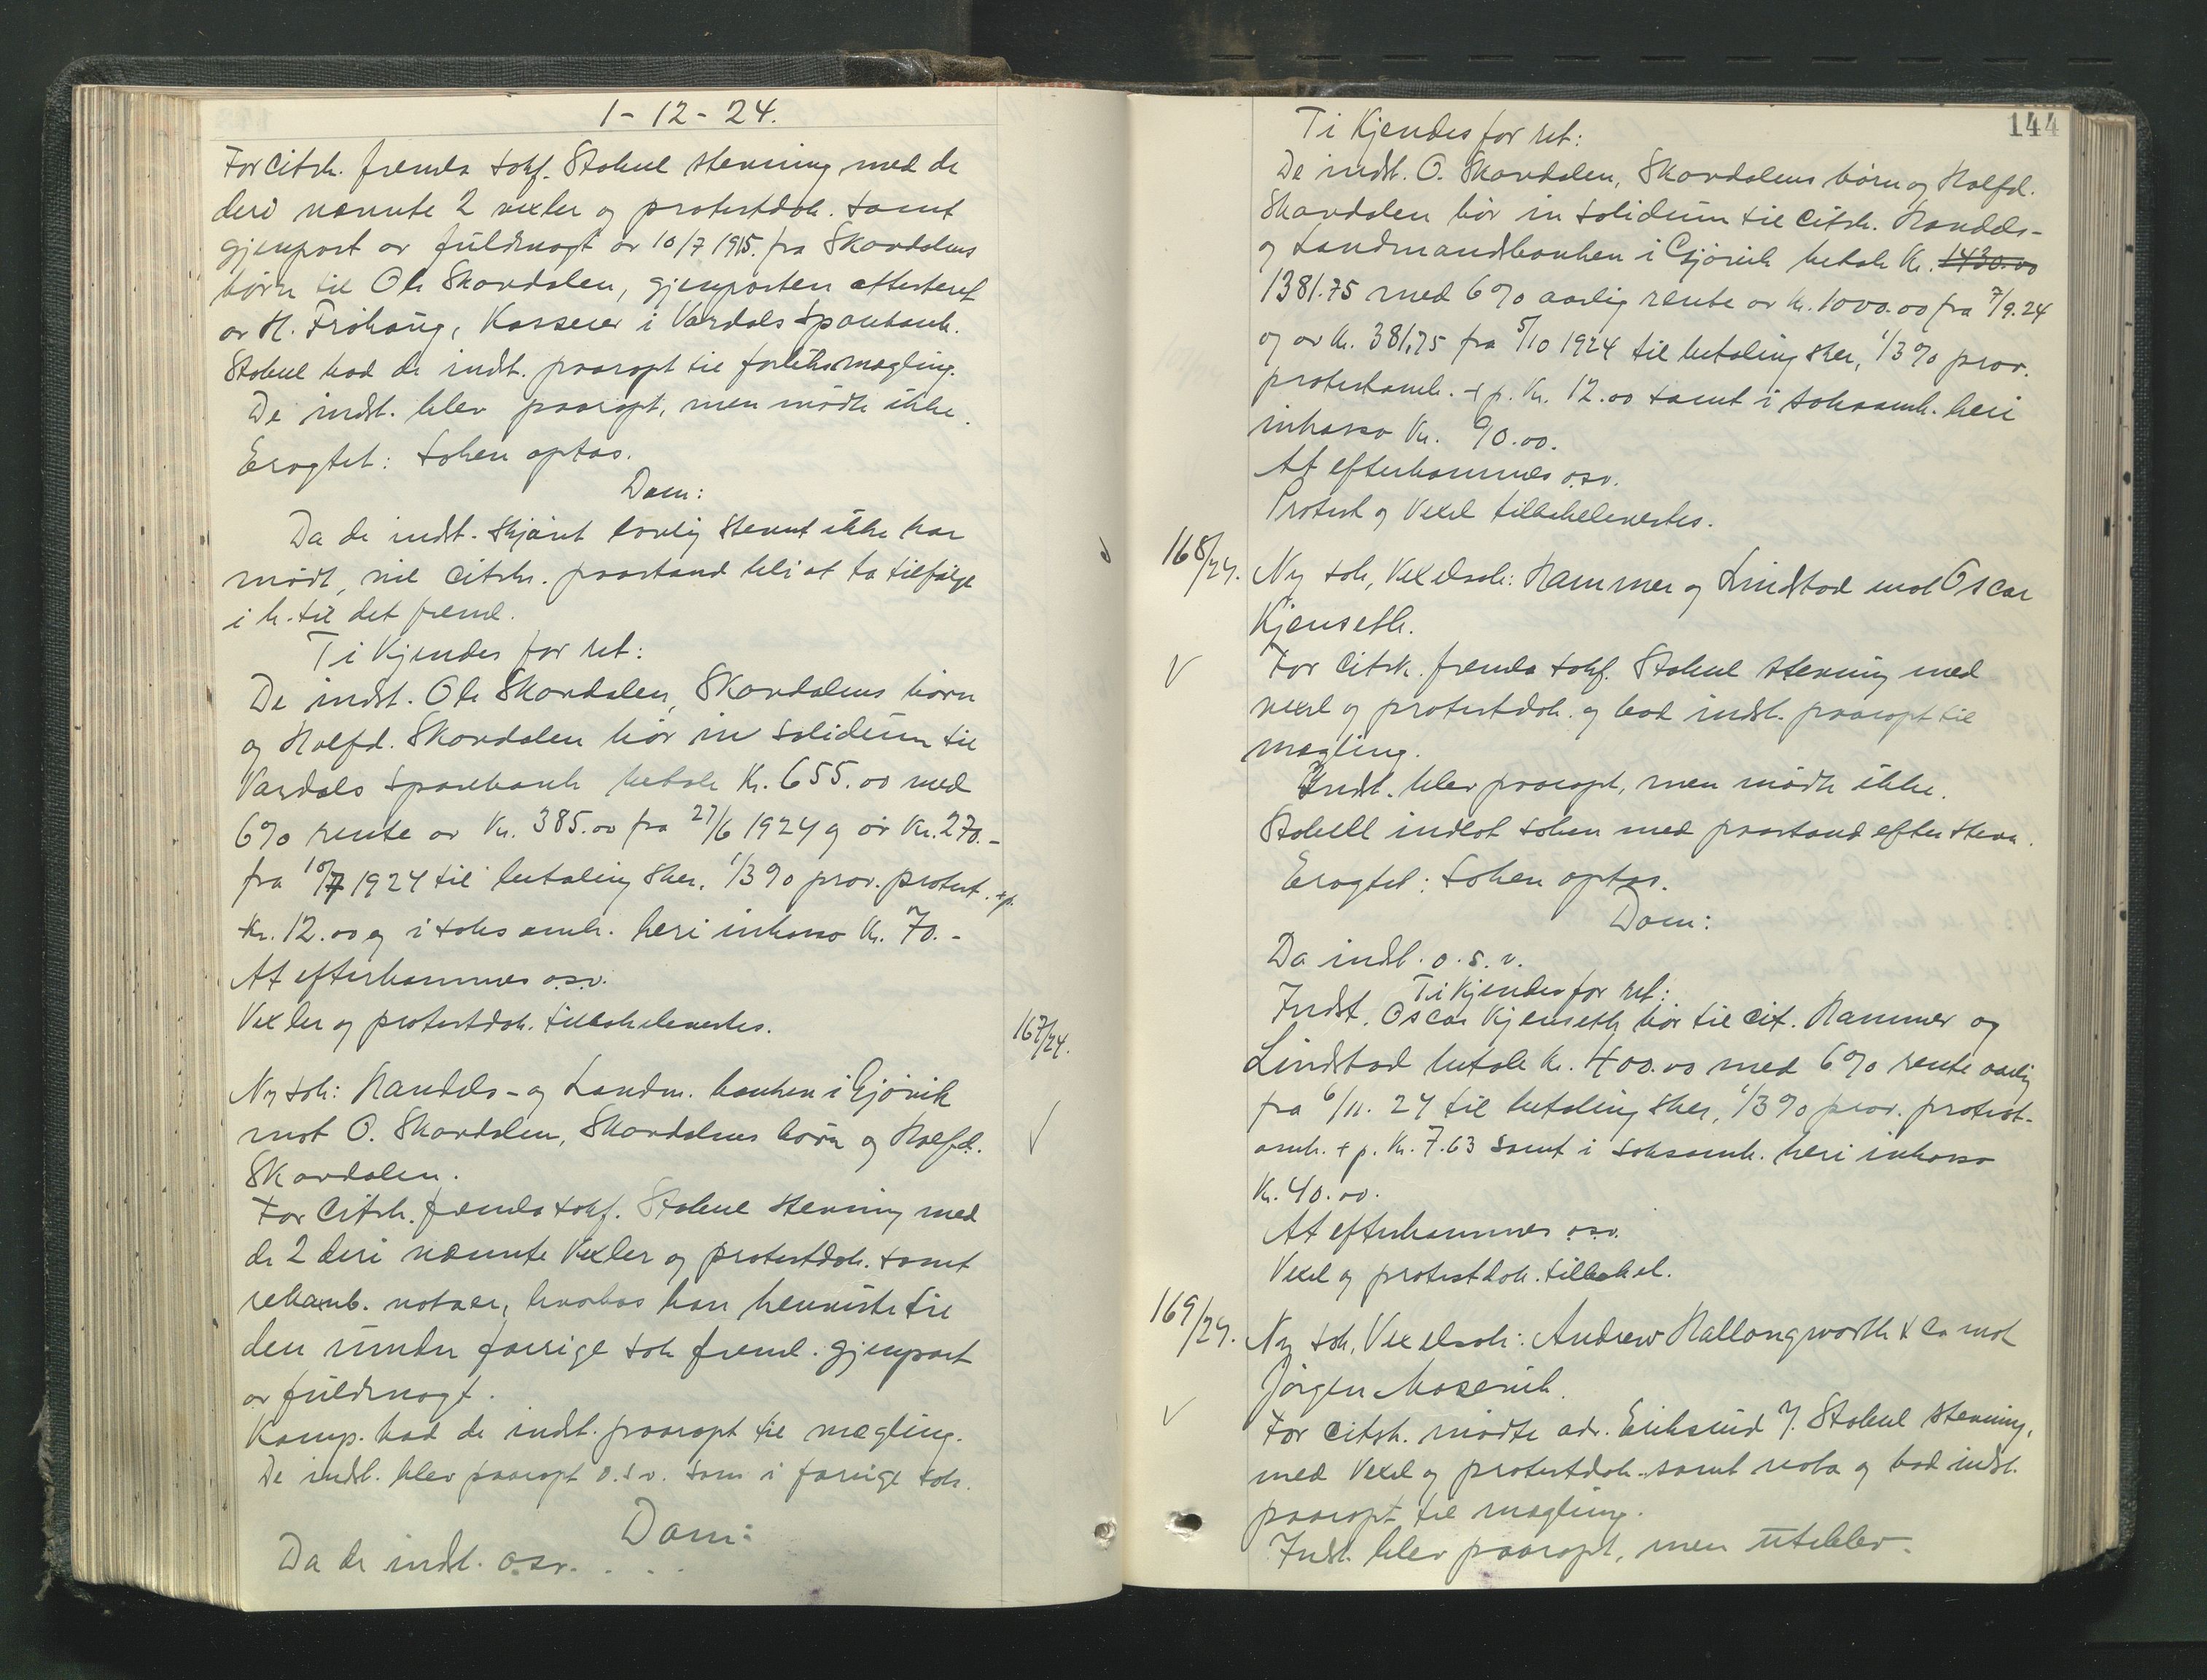 1-12-24.
For citsk. fremla sakf. Stabell stevning med de
deri nævnte 2 vexler og protestdok. samt
gjenpart av fuldmagt av 10/7 1915. fra Skavdalens
børn til Ole Skavdalen, gjenparten attesteret
av H. Fröhaug, Kasserer i Vardals Sparebank.
Stabell bad de indst. paaropt til forliksmægling.
De indst. blev paaropt, men mødte ikke.
Eragtet: Saken optas.
Dom:
Da de indst. skjønt lovlig stevnt ikke har
mødt, vil citsk. paastand bli at ta tilfølge
i h. til det freml.
Ti Kjendes for ret:
De indst. Ole Skavdalen, Skavdalens børn
og Halfd. Skavdalen bör in solidum til
Vardals Sparebank betale Kr. 655.00 med
6% rente av Kr. 385.00 fra 27/6 1924 og av Kr. 270.-
fra 10/7 1924 til betaling sker, 1/3% prov. protest. + p.
Kr. 12.00 og i saksomk. heri inkasso Kr. 70.-
At efterkommes o.s.v.
Vexler og protestdok. tilbakelevertes.
167/24.
Ny sak: Handels- og Landm. banken i Gjövik
mot O. Skavdalen, Skavdalens børn og Halfd.
Skavdalen.
For Citsk. fremla sakf. Stabell stevning med
de 2 deri nævnte Vexler og protestdok. samt
rekamb. notaer, hvorhos han henviste til
den under forrige sak freml. gjenpart
av fuldmagt.
Komp. bad de indst. paaropt til mægling.
De indst. blev paaropt o.s.v. som i forrige sak.
Dom:
Da de indst. osv. . . . .
144
Ti Kjendes for ret:
De indst. O. Skavdalen, Skavdalens børn og Halfd.
Skavdalen bör in solidum til citsk. Handels-
og Landmandsbanken i Gjövik betale Kr. 1430.00
1381.75 med 6% aarlig rente av Kr. 1000.00 fra 7/9.24
og av Kr. 381.75 fra 5/10 1924 til betaling sker, 1/3% prov.
protestomk. + p. Kr. 12.00 samt i saksomk. heri
inkasso Kr. 90.00.
At efterkommes o.s.v.
Protest og Vexel tilbakelevertes.
168/24. Ny sak, Vexelsak: Hammer og Lindstad mot Oscar
Kjenseth.
For citsk. fremla sakf. Stabell stevning med
vexel og protestdok. og bad indst. paaropt til
mægling.
Indst. blev paaropt, men mødte ikke.
Stabell indlot saken med paastand efter stevn.
Eragtet: Saken optas.
Dom:
Da indst. o.s.v.
Ti Kjendes for ret:
Indst. Oscar Kjenseth bör til cit. Hammer og
Lindstad betale Kr. 400.00 med 6% rente aarlig
fra 6/11. 24 til betaling sker, 1/3% prov. protest-
omk. + p. Kr. 7.63 samt i saksomk. heri inkasso
Kr. 40.00.
At efterkommes o.s.v.
Vexel og protestdok. tilbakel.
169/24. Ny sak, Vexelsak: Andrew Hallongworth & Co mot
Jörgen Moservik.
For citsk. mødte adv. Eriksrud f. Stabell stevning,
med Vexel og protestdok. samt nota og bad indst.
paaropt til mægling.
Indst. blev paaropt, men uteblev.